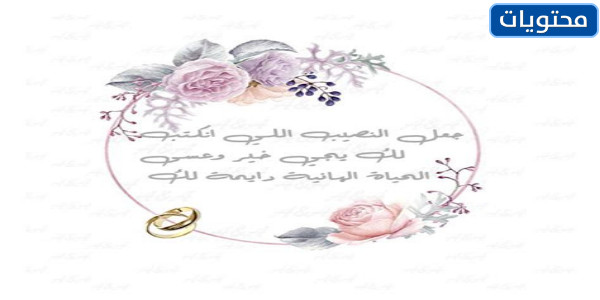 محتويات
جعل النصيب اللي انكتب
لك يجي خير وعسى
الحياة الهانية دايمة لك